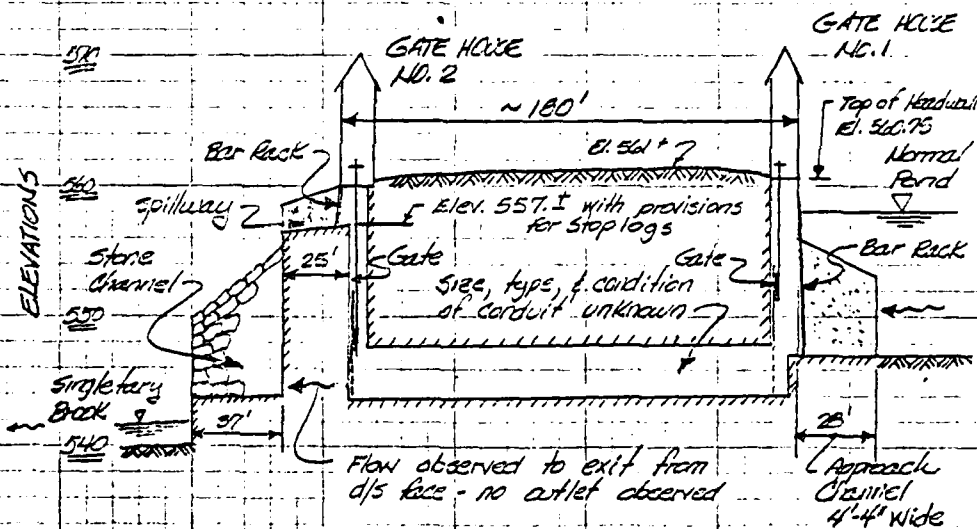 GATE HOUSE
NO. 1
GATE HOUSE
NO. 2
570
~ 180'
Top of Headwall
El. 560.75
Normal
Pond
Bar Rack
El. 561 ±
560
Spillway
Elev. 557.± with provisions
for Stop logs
ELEVATIONS
Stone
Channel
25'
Gate
Gate
Bar Rack
Size, type, & condition
of conduit unknown
550
Singletary
Brook
37'
540
28'
Flow observed to exit from
d/s face - no outlet observed
Approach
Channel
4'-4" Wide